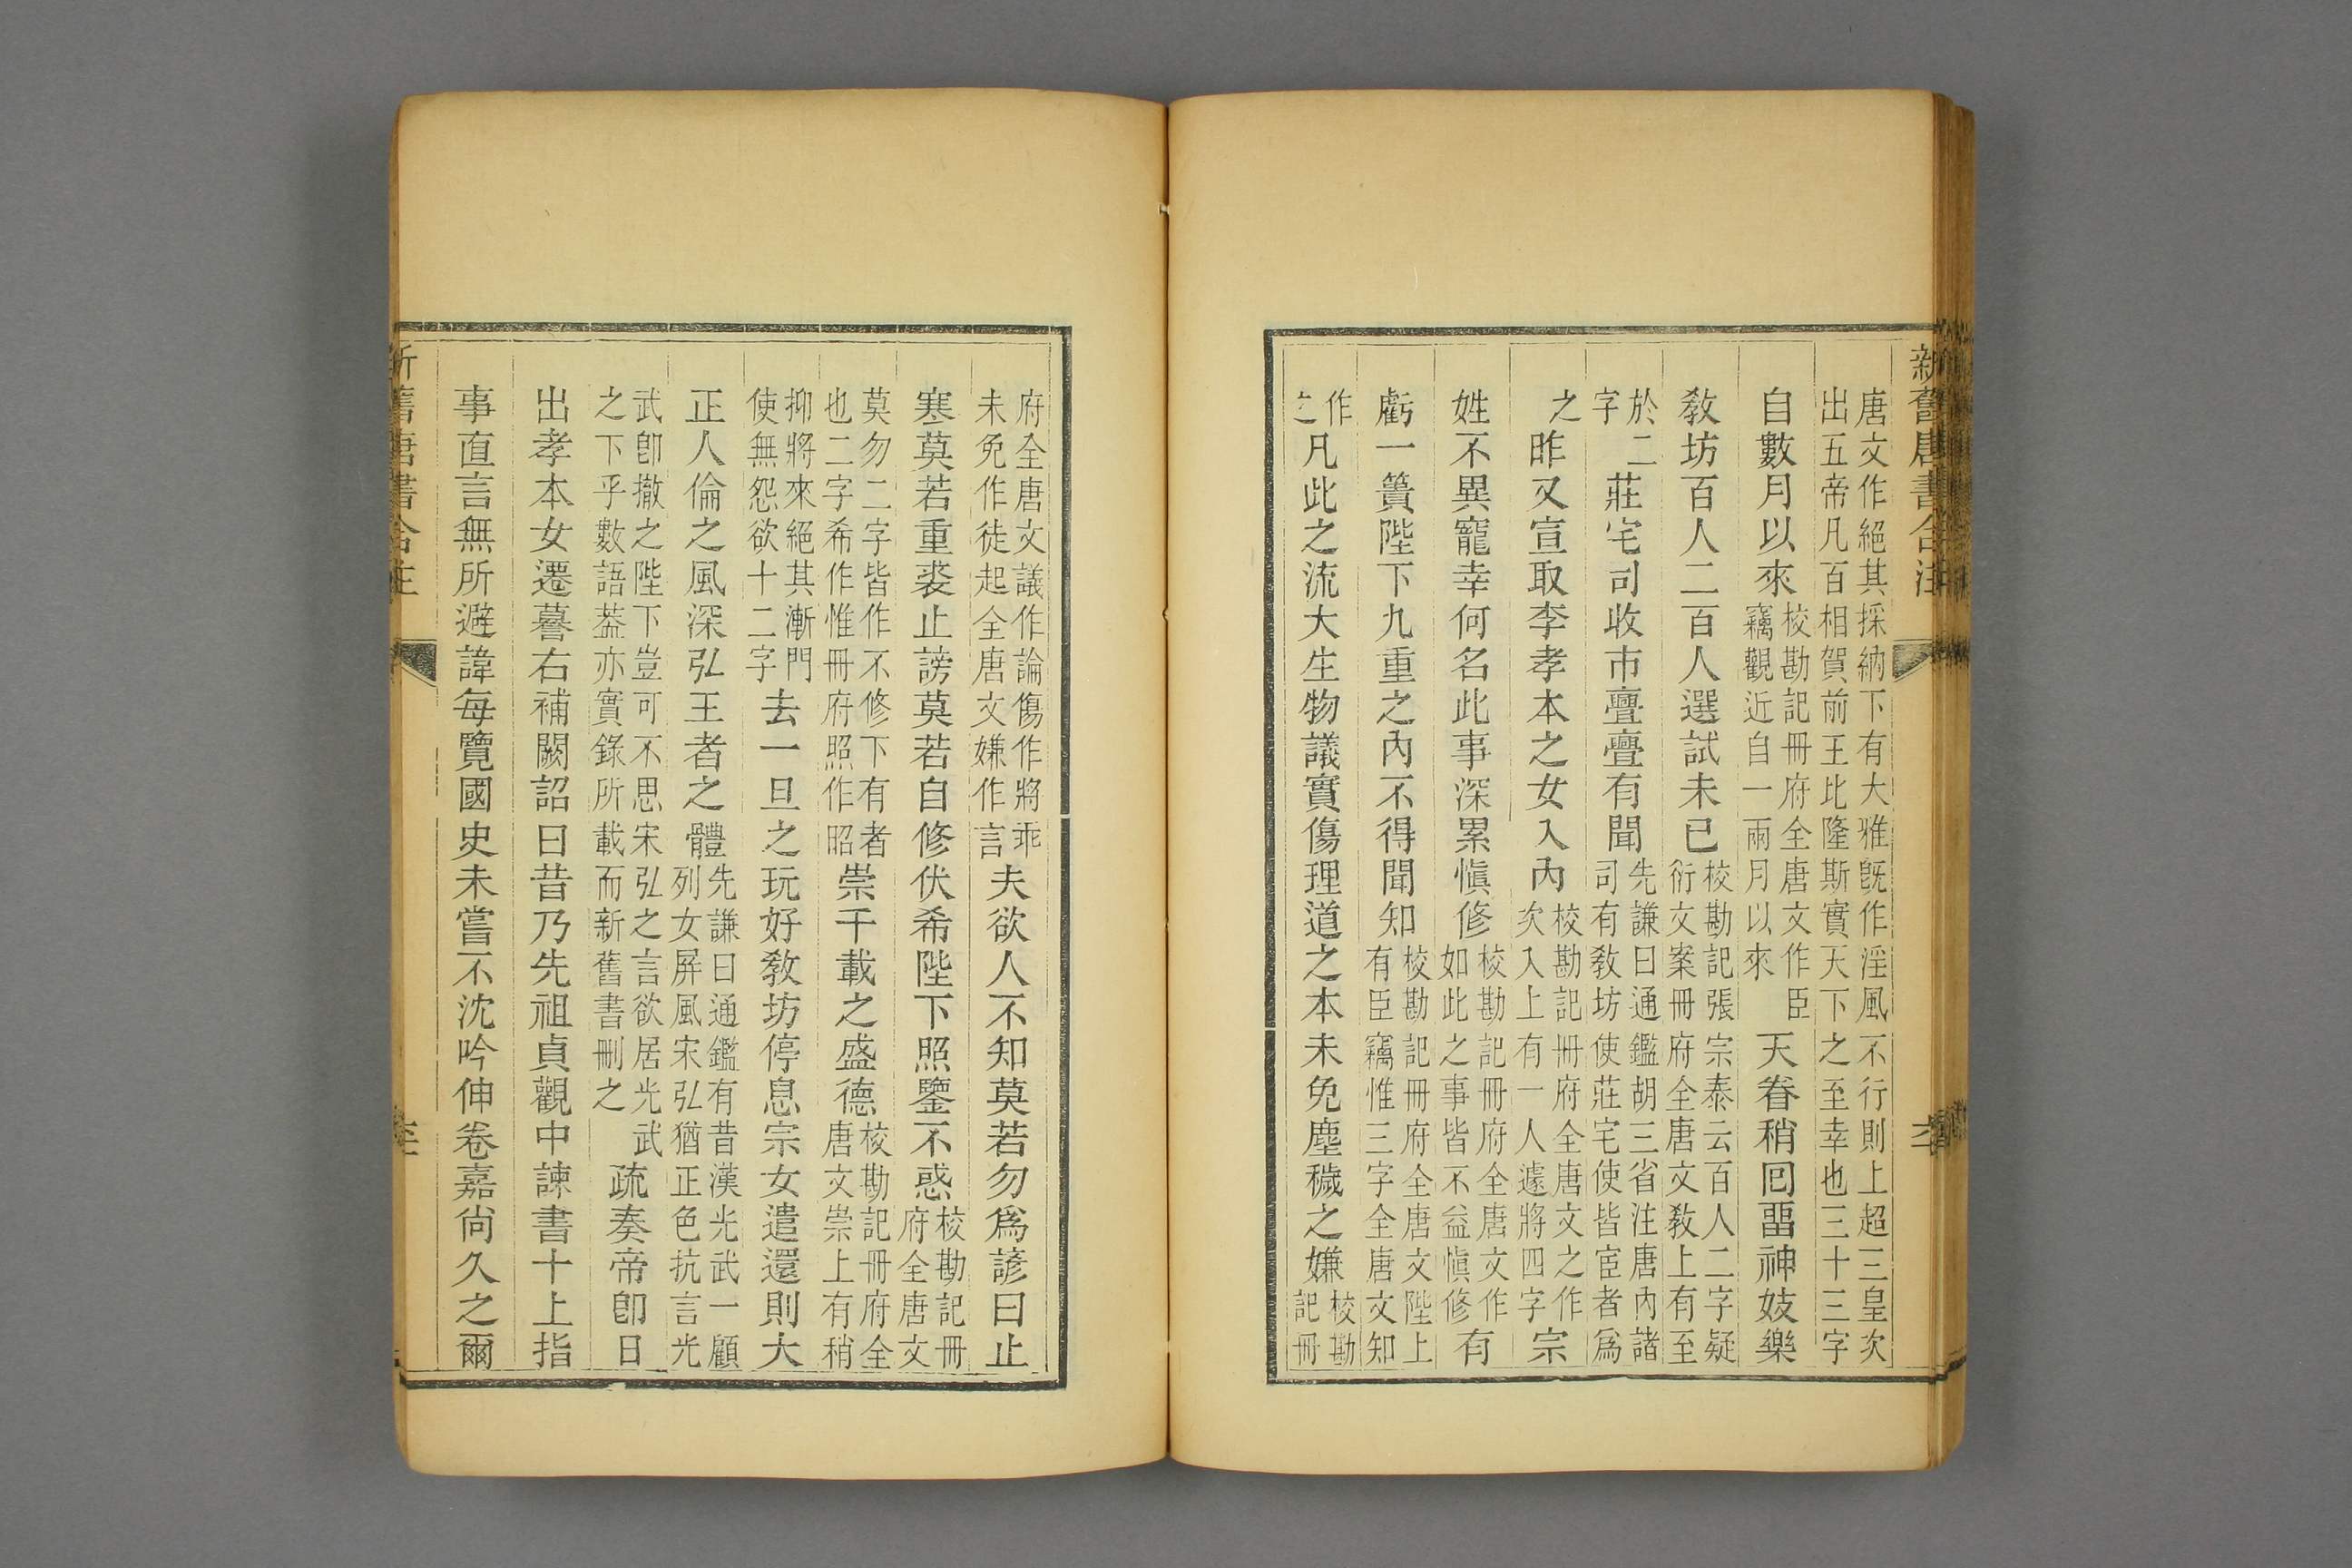 新舊唐書合注
唐文作絕其採納下有大雅既作淫風不行則上超三皇次
出五帝凡百相賀前王比隆斯實天下之至幸也三十三字
自數月以來
校勘記冊府全唐文作臣
竊觀近自一兩月以來
天眷稍回畱神妓樂
敎坊百人二百人選試未已
校勘記張宗泰云百人二字疑
衍文案冊府全唐文敎上有至
於二
字
莊宅司收市亹亹有聞
先謙曰通鑑胡三省注唐內諸
司有敎坊使莊宅使皆宦者爲
之
昨又宣取李孝本之女入內
校勘記冊府全唐文之作
次入上有一人遽將四字
宗
姓不異寵幸何名此事深累愼修
校勘記冊府全唐文作
如此之事皆不益愼修
有
虧一簣陛下九重之內不得聞知
校勘記冊府全唐文陛上
有臣竊惟三字全唐文知
作
之
凡此之流大生物議實傷理道之本未免塵穢之嫌
校勘
記冊
府全唐文議作論傷作將乖
未免作徒起全唐文嫌作言
夫欲人不知莫若勿爲諺曰止
寒莫若重裘止謗莫若自修伏希陛下照鑒不惑
校勘記冊
府全唐文
莫勿二字皆作不修下有者
也二字希作惟冊府照作昭
崇千載之盛德
校勘記冊府全
唐文崇上有稍
抑將來絕其漸門
使無怨欲十二字
去一旦之玩好敎坊停息宗女遣還則大
正人倫之風深弘王者之體
先謙曰通鑑有昔漢光武一顧
列女屏風宋弘猶正色抗言光
武卽撤之陛下豈可不思宋弘之言欲居光武
之下乎數語葢亦實錄所載而新舊書刪之
疏奏帝卽日
出孝本女遷謩右補闕詔曰昔乃先祖貞觀中諫書十上指
事直言無所避諱每覽國史未嘗不沈吟伸卷嘉尙久之爾
新舊唐書合注